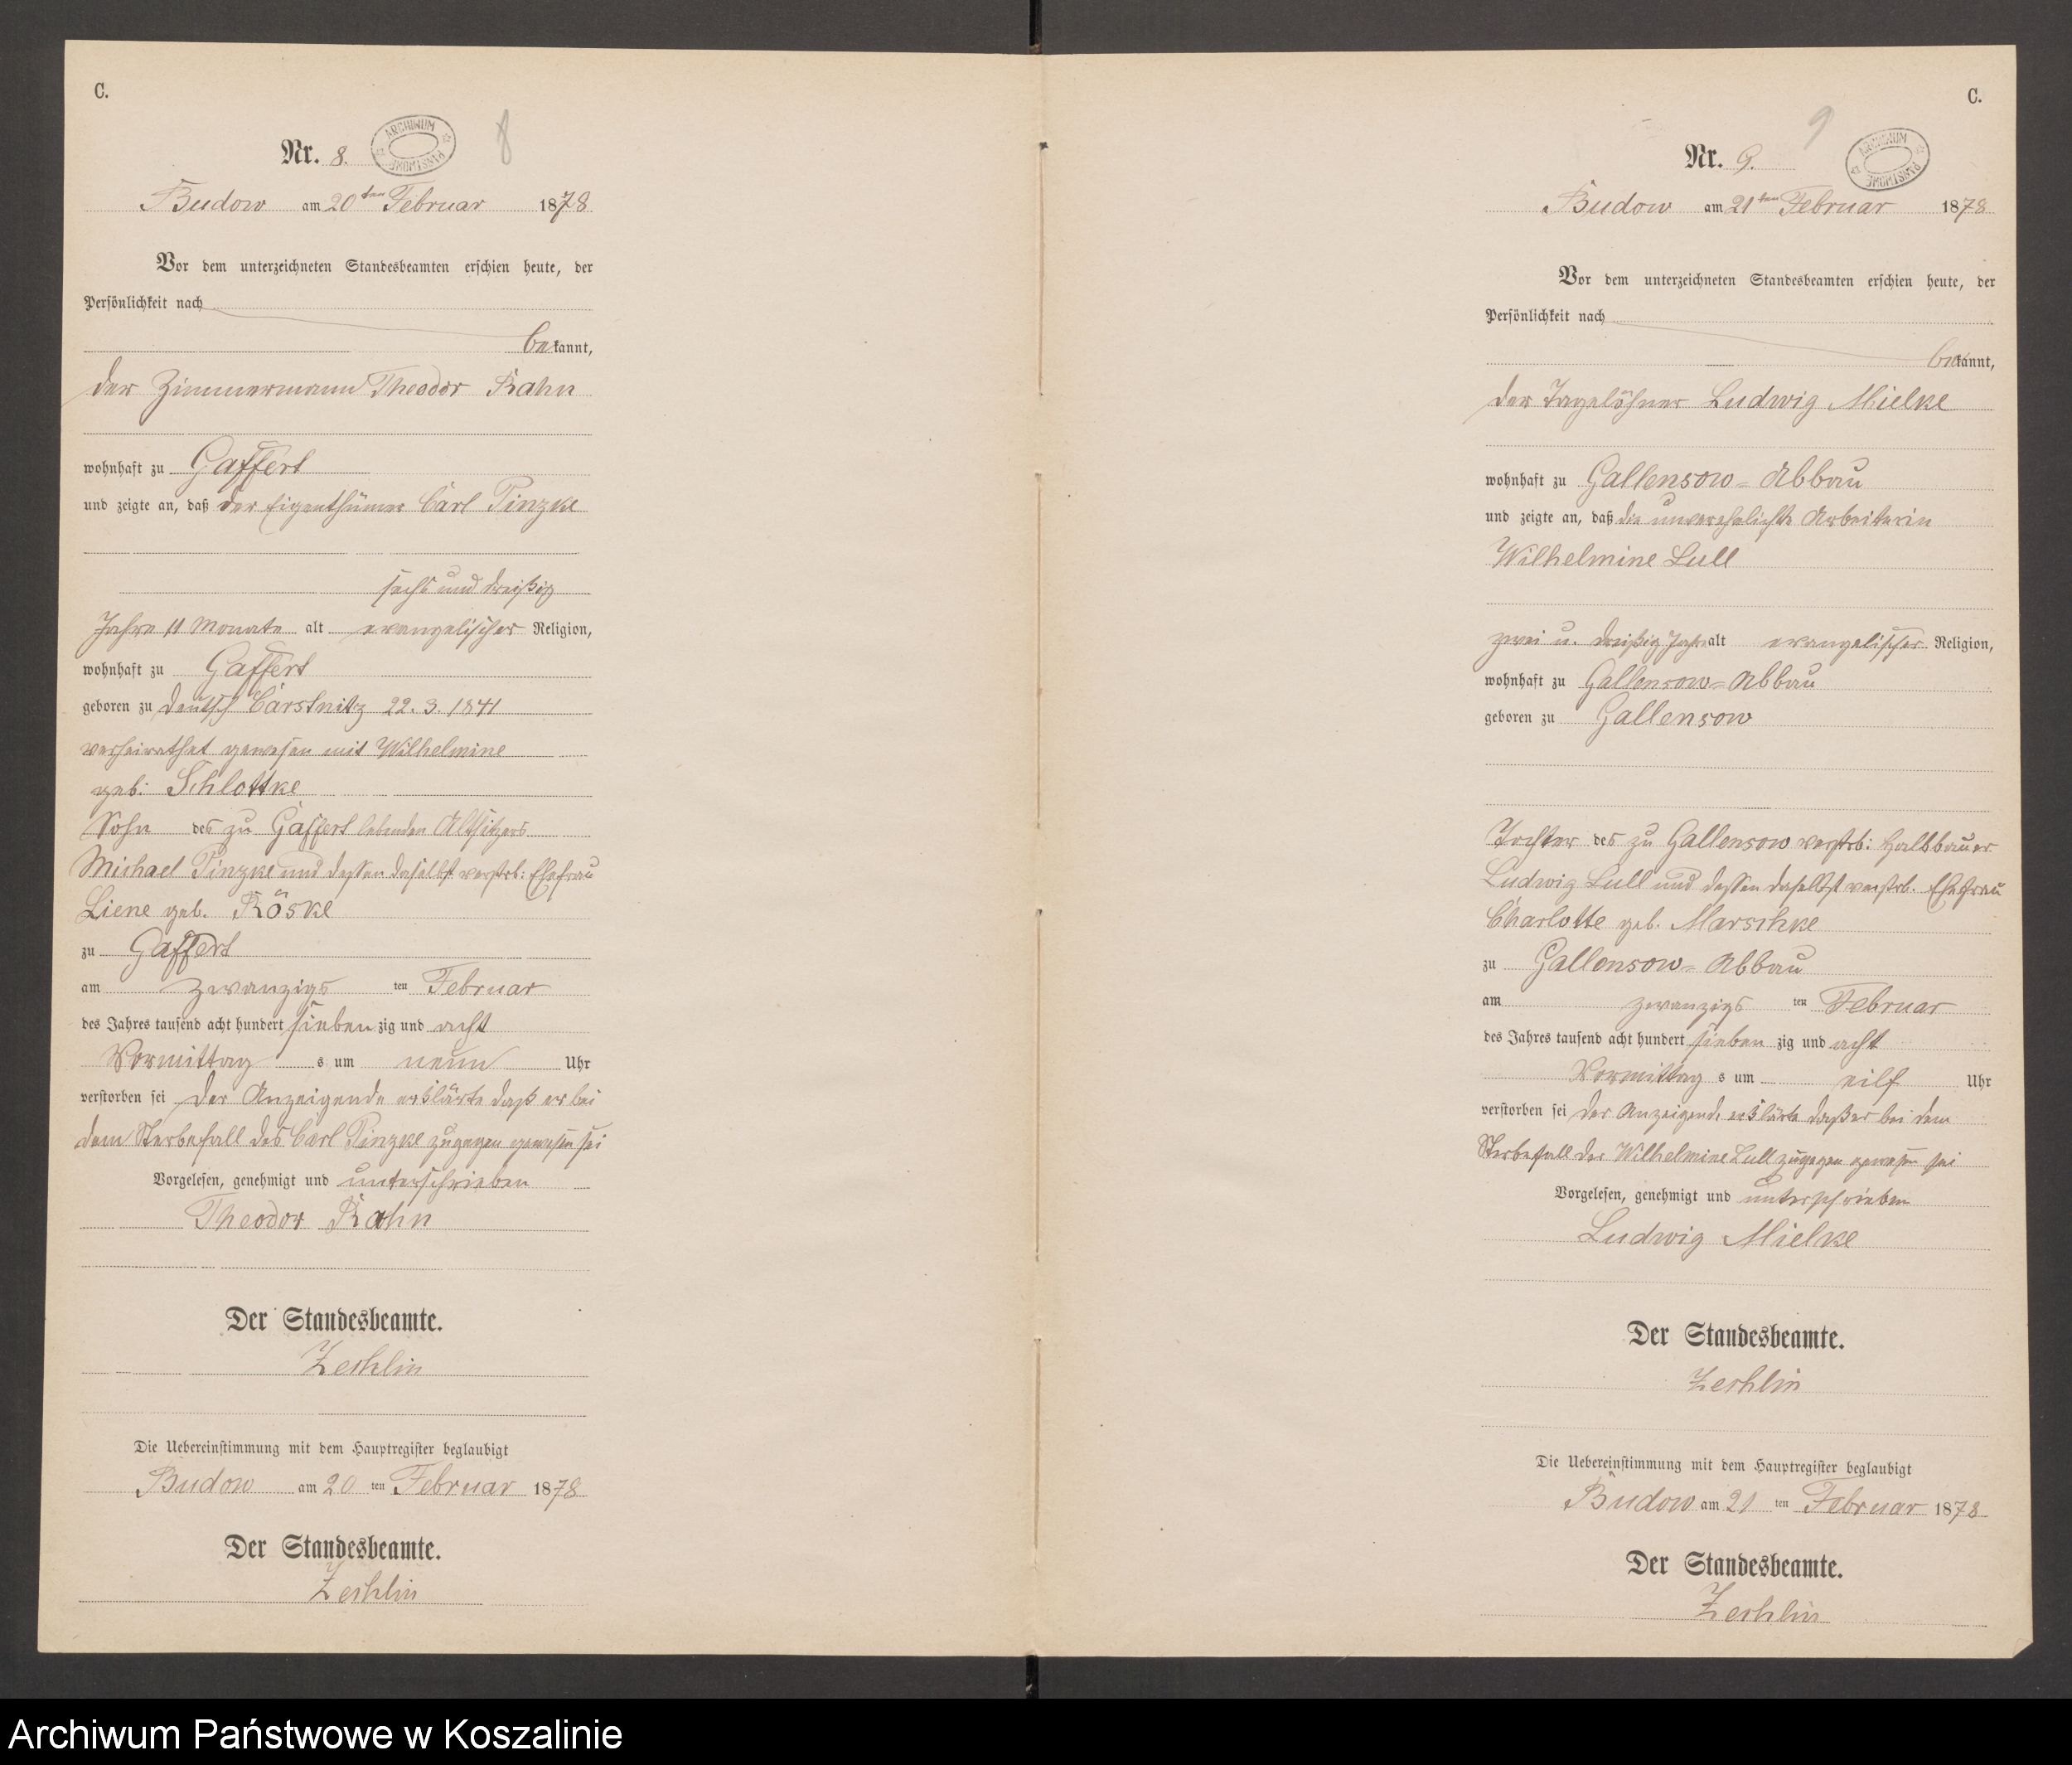 C.
Nr. 8.
ARCHIWUM PAŃSTWOWE
8
Budow am 20ten Februar 1878
Vor dem unterzeichneten Standesbeamten erschien heute, der
Persönlichkeit nach
bekannt,
der Zimmermann Theodor Rahn
wohnhaft zu Gaffert
und zeigte an, daß der Eigenthümer Carl Pinzke
sechs und dreißig
Jahre 11 Monate alt evangelischer Religion,
wohnhaft zu Gaffert
geboren zu Deutsch Carstnitz 22. 3. 1841
verheirathet gewesen mit Wilhelmine
geb. Schlottke
Sohn des zu Gaffert lebenden Altsitzers
Michael Pinzke und dessen daselbst verstb: Ehefrau
Liene geb. Röske
zu Gaffert
am zwanzigs ten Februar
des Jahres tausend acht hundert sieben zig und acht
Vormittag s um neun Uhr
verstorben sei Der Anzeigende erklärte daß er bei
dem Sterbefall des Carl Pinzke zugegen gewesen sei
Vorgelesen, genehmigt und unterschrieben
Theodor Rahn
Der Standesbeamte.
Zechlin
Die Uebereinstimmung mit dem Hauptregister beglaubigt
Budow am 20 ten Februar 1878
Der Standesbeamte.
Zechlin
C.
9
Nr. 9.
ARCHIWUM PAŃSTWOWE
Budow am 21ten Februar 1878
Vor dem unterzeichneten Standesbeamten erschien heute, der
Persönlichkeit nach
bekannt,
der Tagelöhner Ludwig Mielke
wohnhaft zu Gallensow=Abbau
und zeigte an, daß die unverehelichte Arbeiterin
Wilhelmine Lull
zwei u. dreißig Jahre alt evangelischer Religion,
wohnhaft zu Gallensow=Abbau
geboren zu Gallensow
Tochter des zu Gallensow verstb: Halbbauer
Ludwig Lull und dessen daselbst verstb. Ehefrau
Charlotte geb. Marschke
zu Gallensow=Abbau
am zwanzigs ten Februar
des Jahres tausend acht hundert sieben zig und acht
Vormittag s um eilf Uhr
verstorben sei Der Anzeigende erklärte daß er bei dem
Sterbefall der Wilhelmine Lull zugegen gewesen sei
Vorgelesen, genehmigt und unterschrieben
Ludwig Mielke
Der Standesbeamte.
Zechlin
Die Uebereinstimmung mit dem Hauptregister beglaubigt
Budow am 21 ten Februar 1878
Der Standesbeamte.
Zechlin
Archiwum Państwowe w Koszalinie